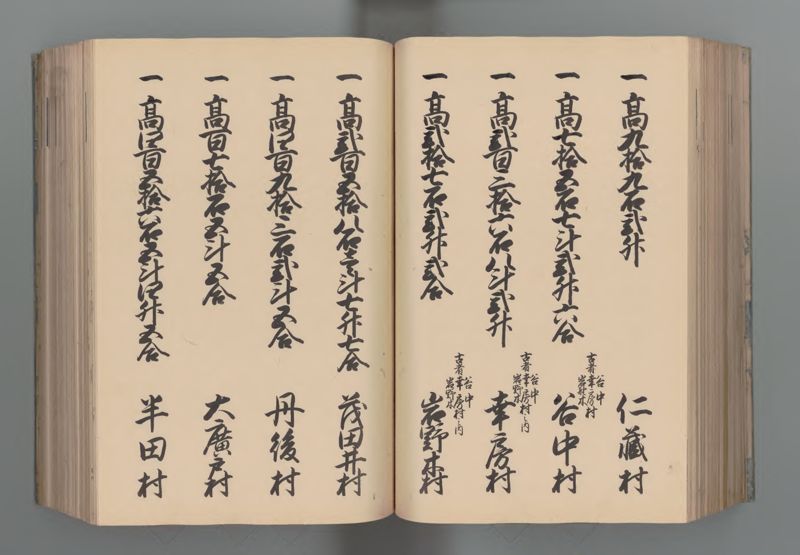 一 高九拾九石弐升 仁蔵村
一 高七拾五石七斗弐升六合 谷中村
古者幸房村
谷中
岩野木
一 高弐百三拾六石八斗弐升 幸房村
古者幸房村之内
谷中
岩野木
一 高弐拾七石弐升弐合 岩野木村
古者幸房村之内
谷中
一 高弐百五拾八石壱斗七升七合 茂田井村
一 高四百九拾三石弐斗五合 丹後村
一 高百七拾石五斗五合 大廣戸村
一 高四百五拾六石五斗四升五合 半田村